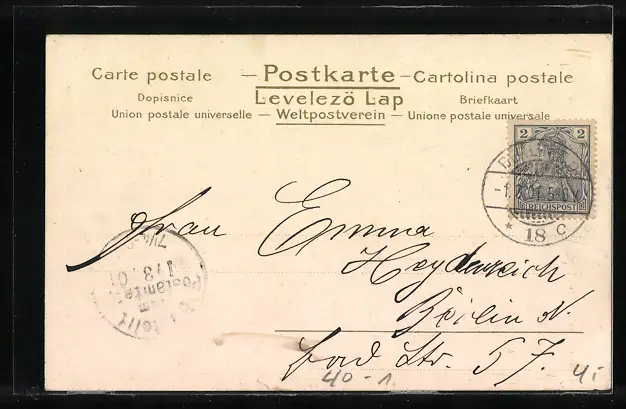 Carte postale — Postkarte — Cartolina postale
Dopisnice Levelező Lap Briefkaart
Union postale universelle — Weltpostverein — Unione postale universale
2 2
REICHSPOST
* 18 c
Frau Emma
Heydenreich
Berlin N.
Str. 57.
40-1
4,-